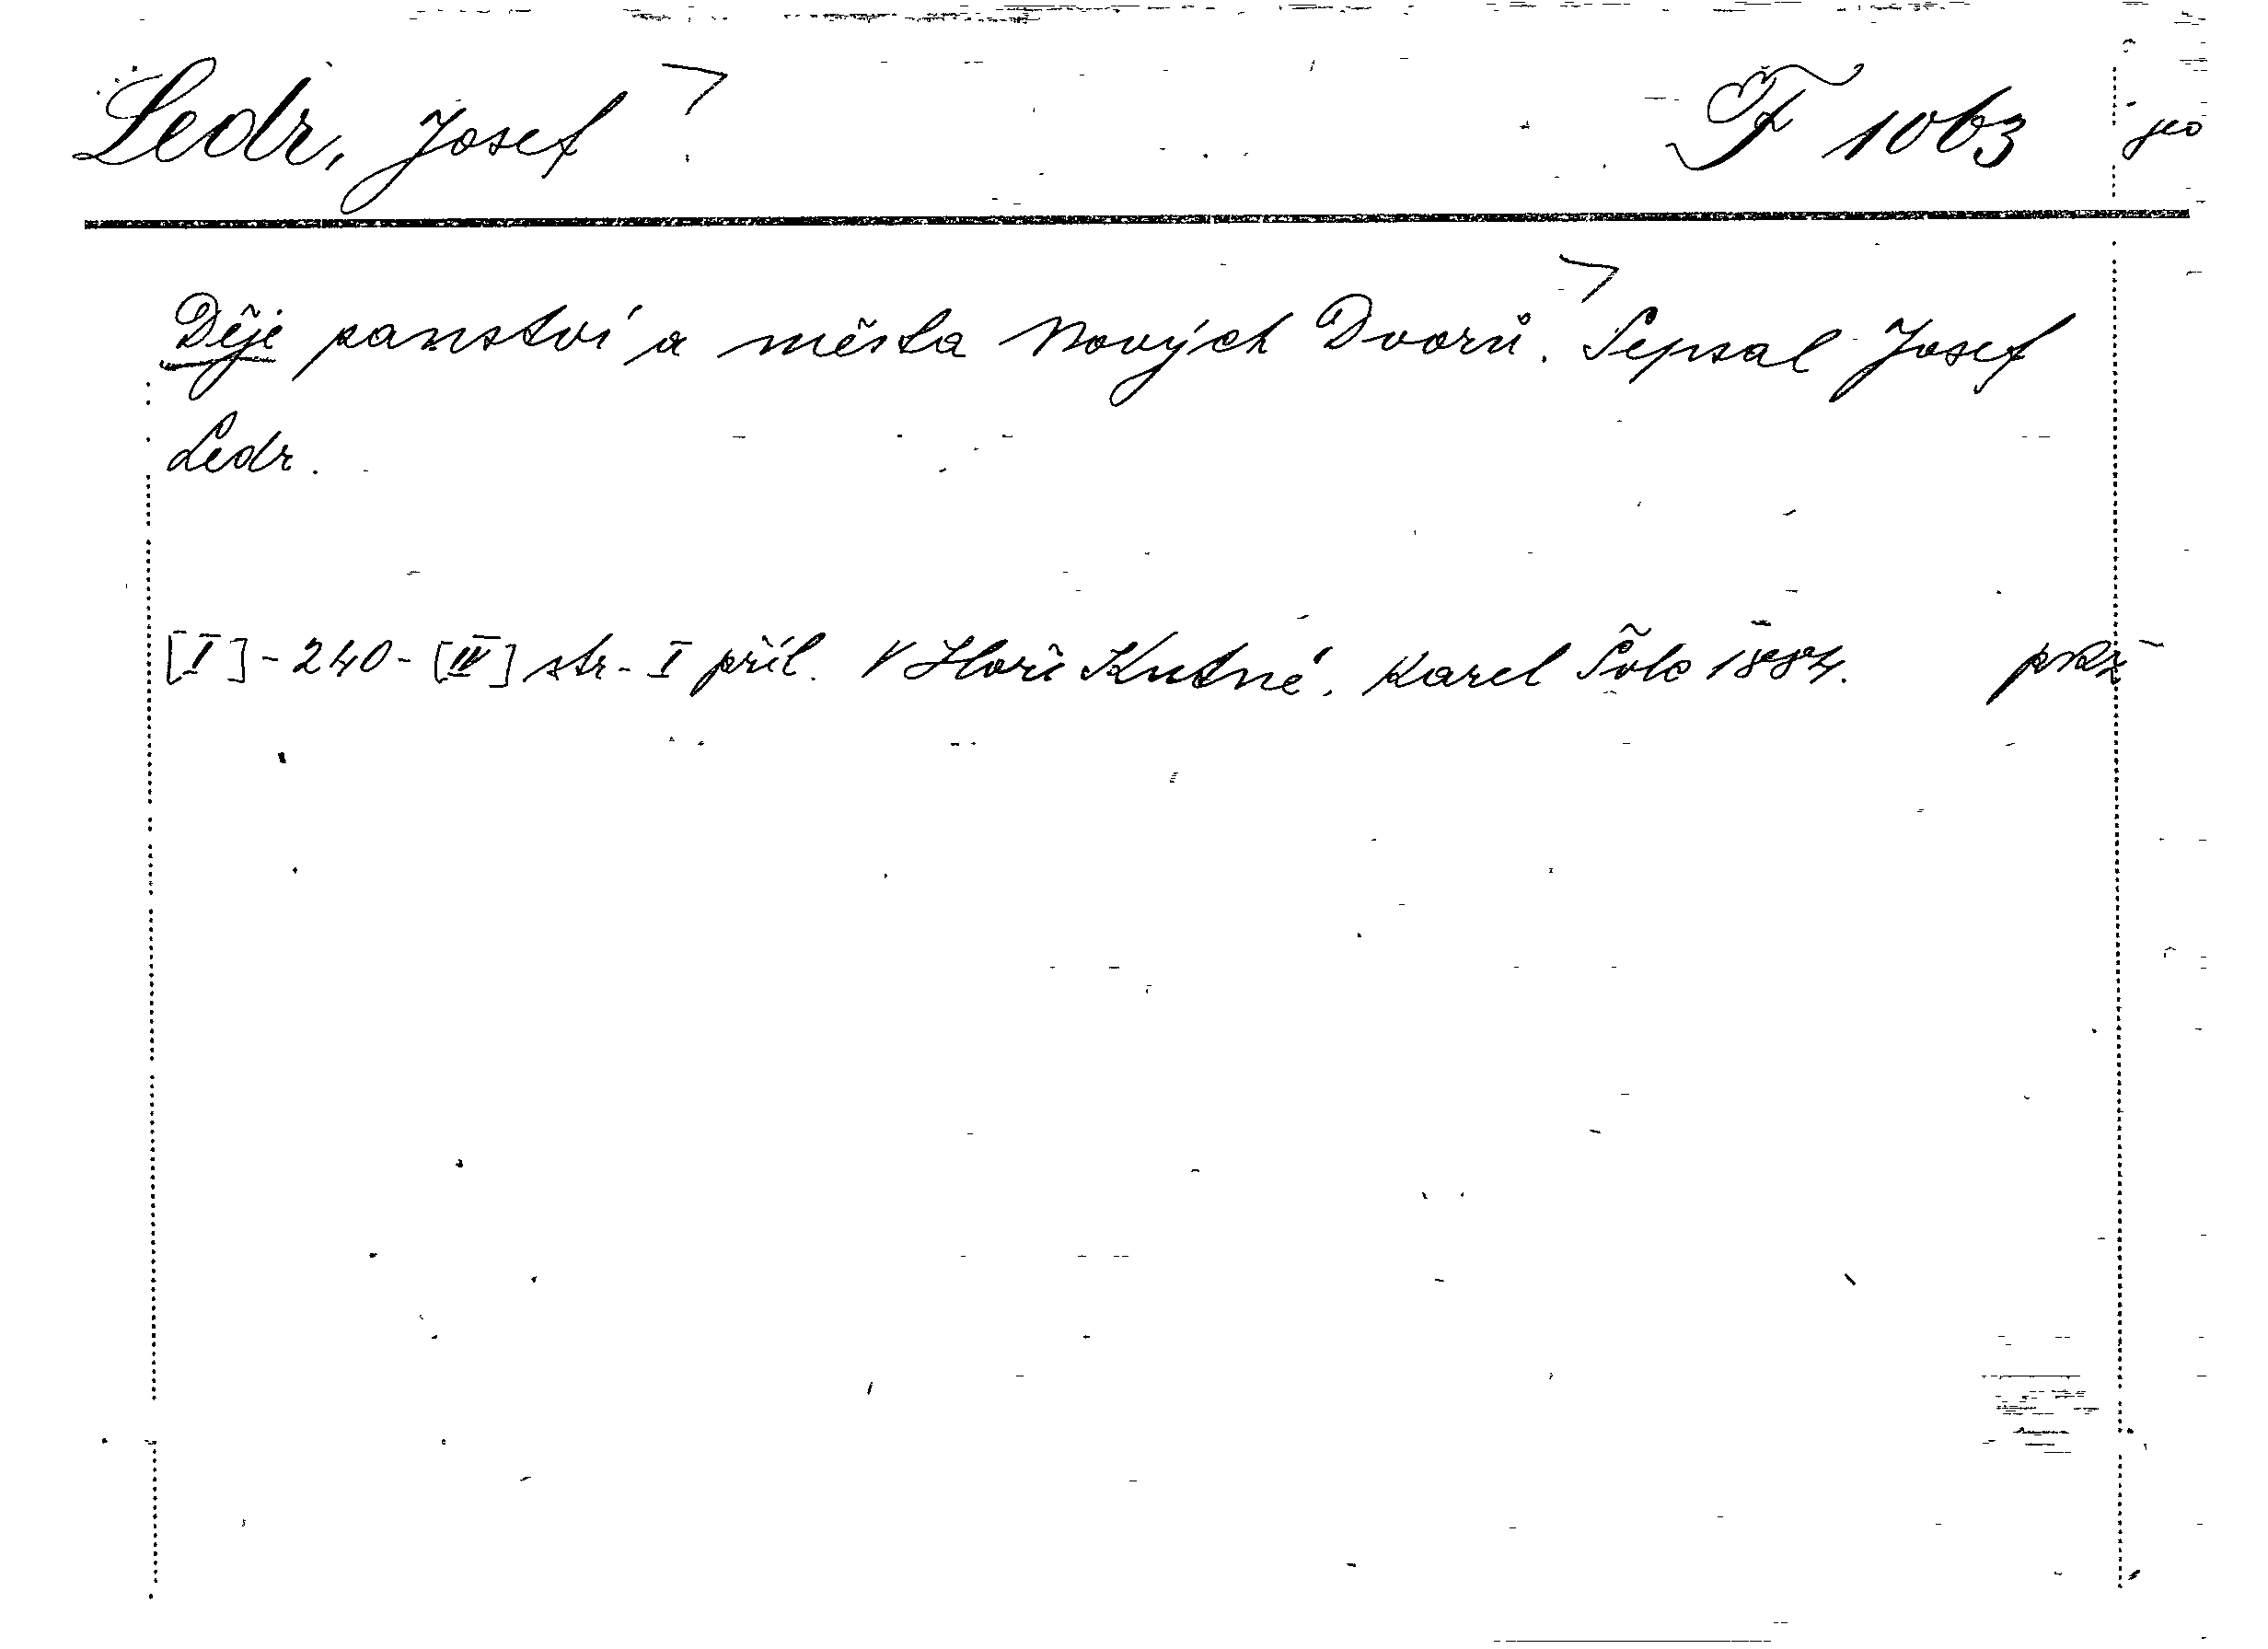 Ledr, Josef F 1063
Děje panství a města Nových Dvorů. Sepsal Josef
Ledr.
[I]-240-[IV] str-I příl. V Hoře Kutné. Karel Šolc 1884.